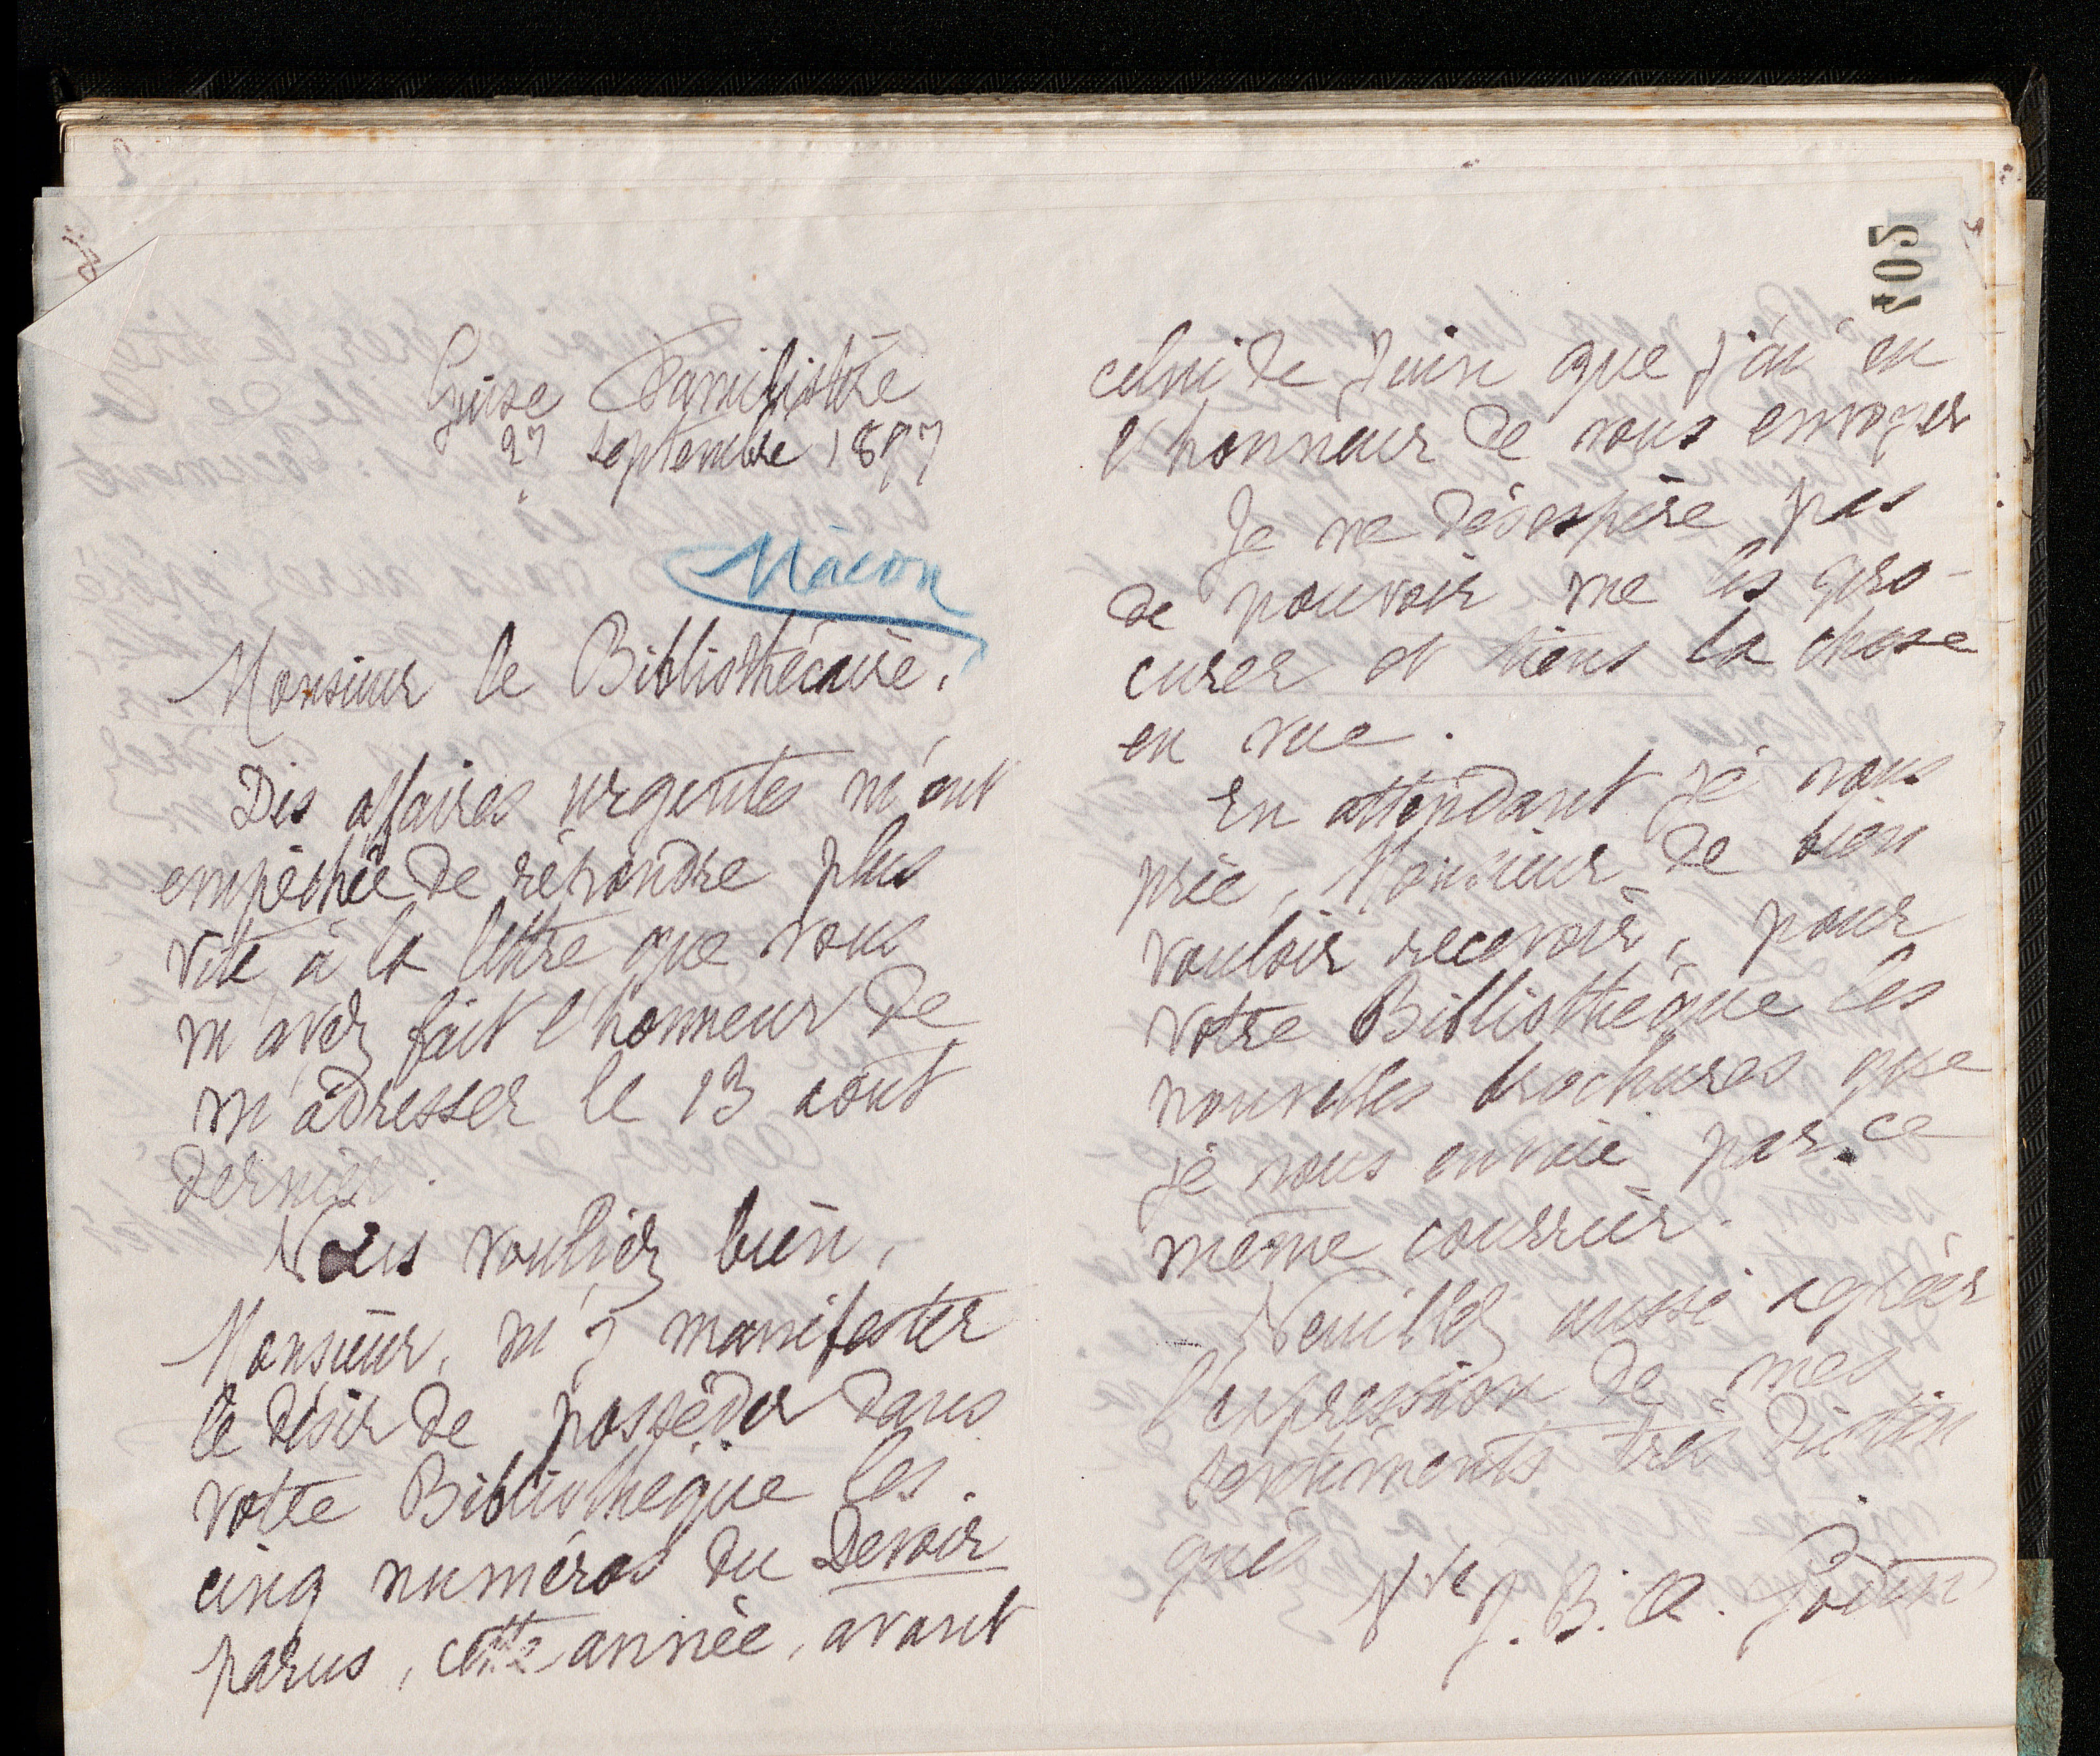 Guise Familistère
27 septembre 1897
Mâcon
Monsieur le Bibliothécaire,
Des affaires urgentes m'ont
empêchée de répondre plus
vite à la lettre que vous
m'avez fait l'honneur de
m'adresser le 13 août
dernier.
Vous vouliez bien,
Monsieur, m'y manifester
le désir de posséder dans
votre Bibliothèque les
cinq numéros du Devoir
parus, cette année, avant
405
celui de Juin que j'ai eu
l'honneur de vous envoyer
Je ne désespère pas
de pouvoir me les pro-
curer et tiens la chose
en vue.
En attendant je vous
prie, Monsieur de bien
vouloir recevoir, pour
votre Bibliothèque les
nouvelles brochures que
je vous envoie par ce
même courrier.
Veuillez aussi agréer
l'expression de mes
sentiments très distin
gués
Vve J. B. A. Godin